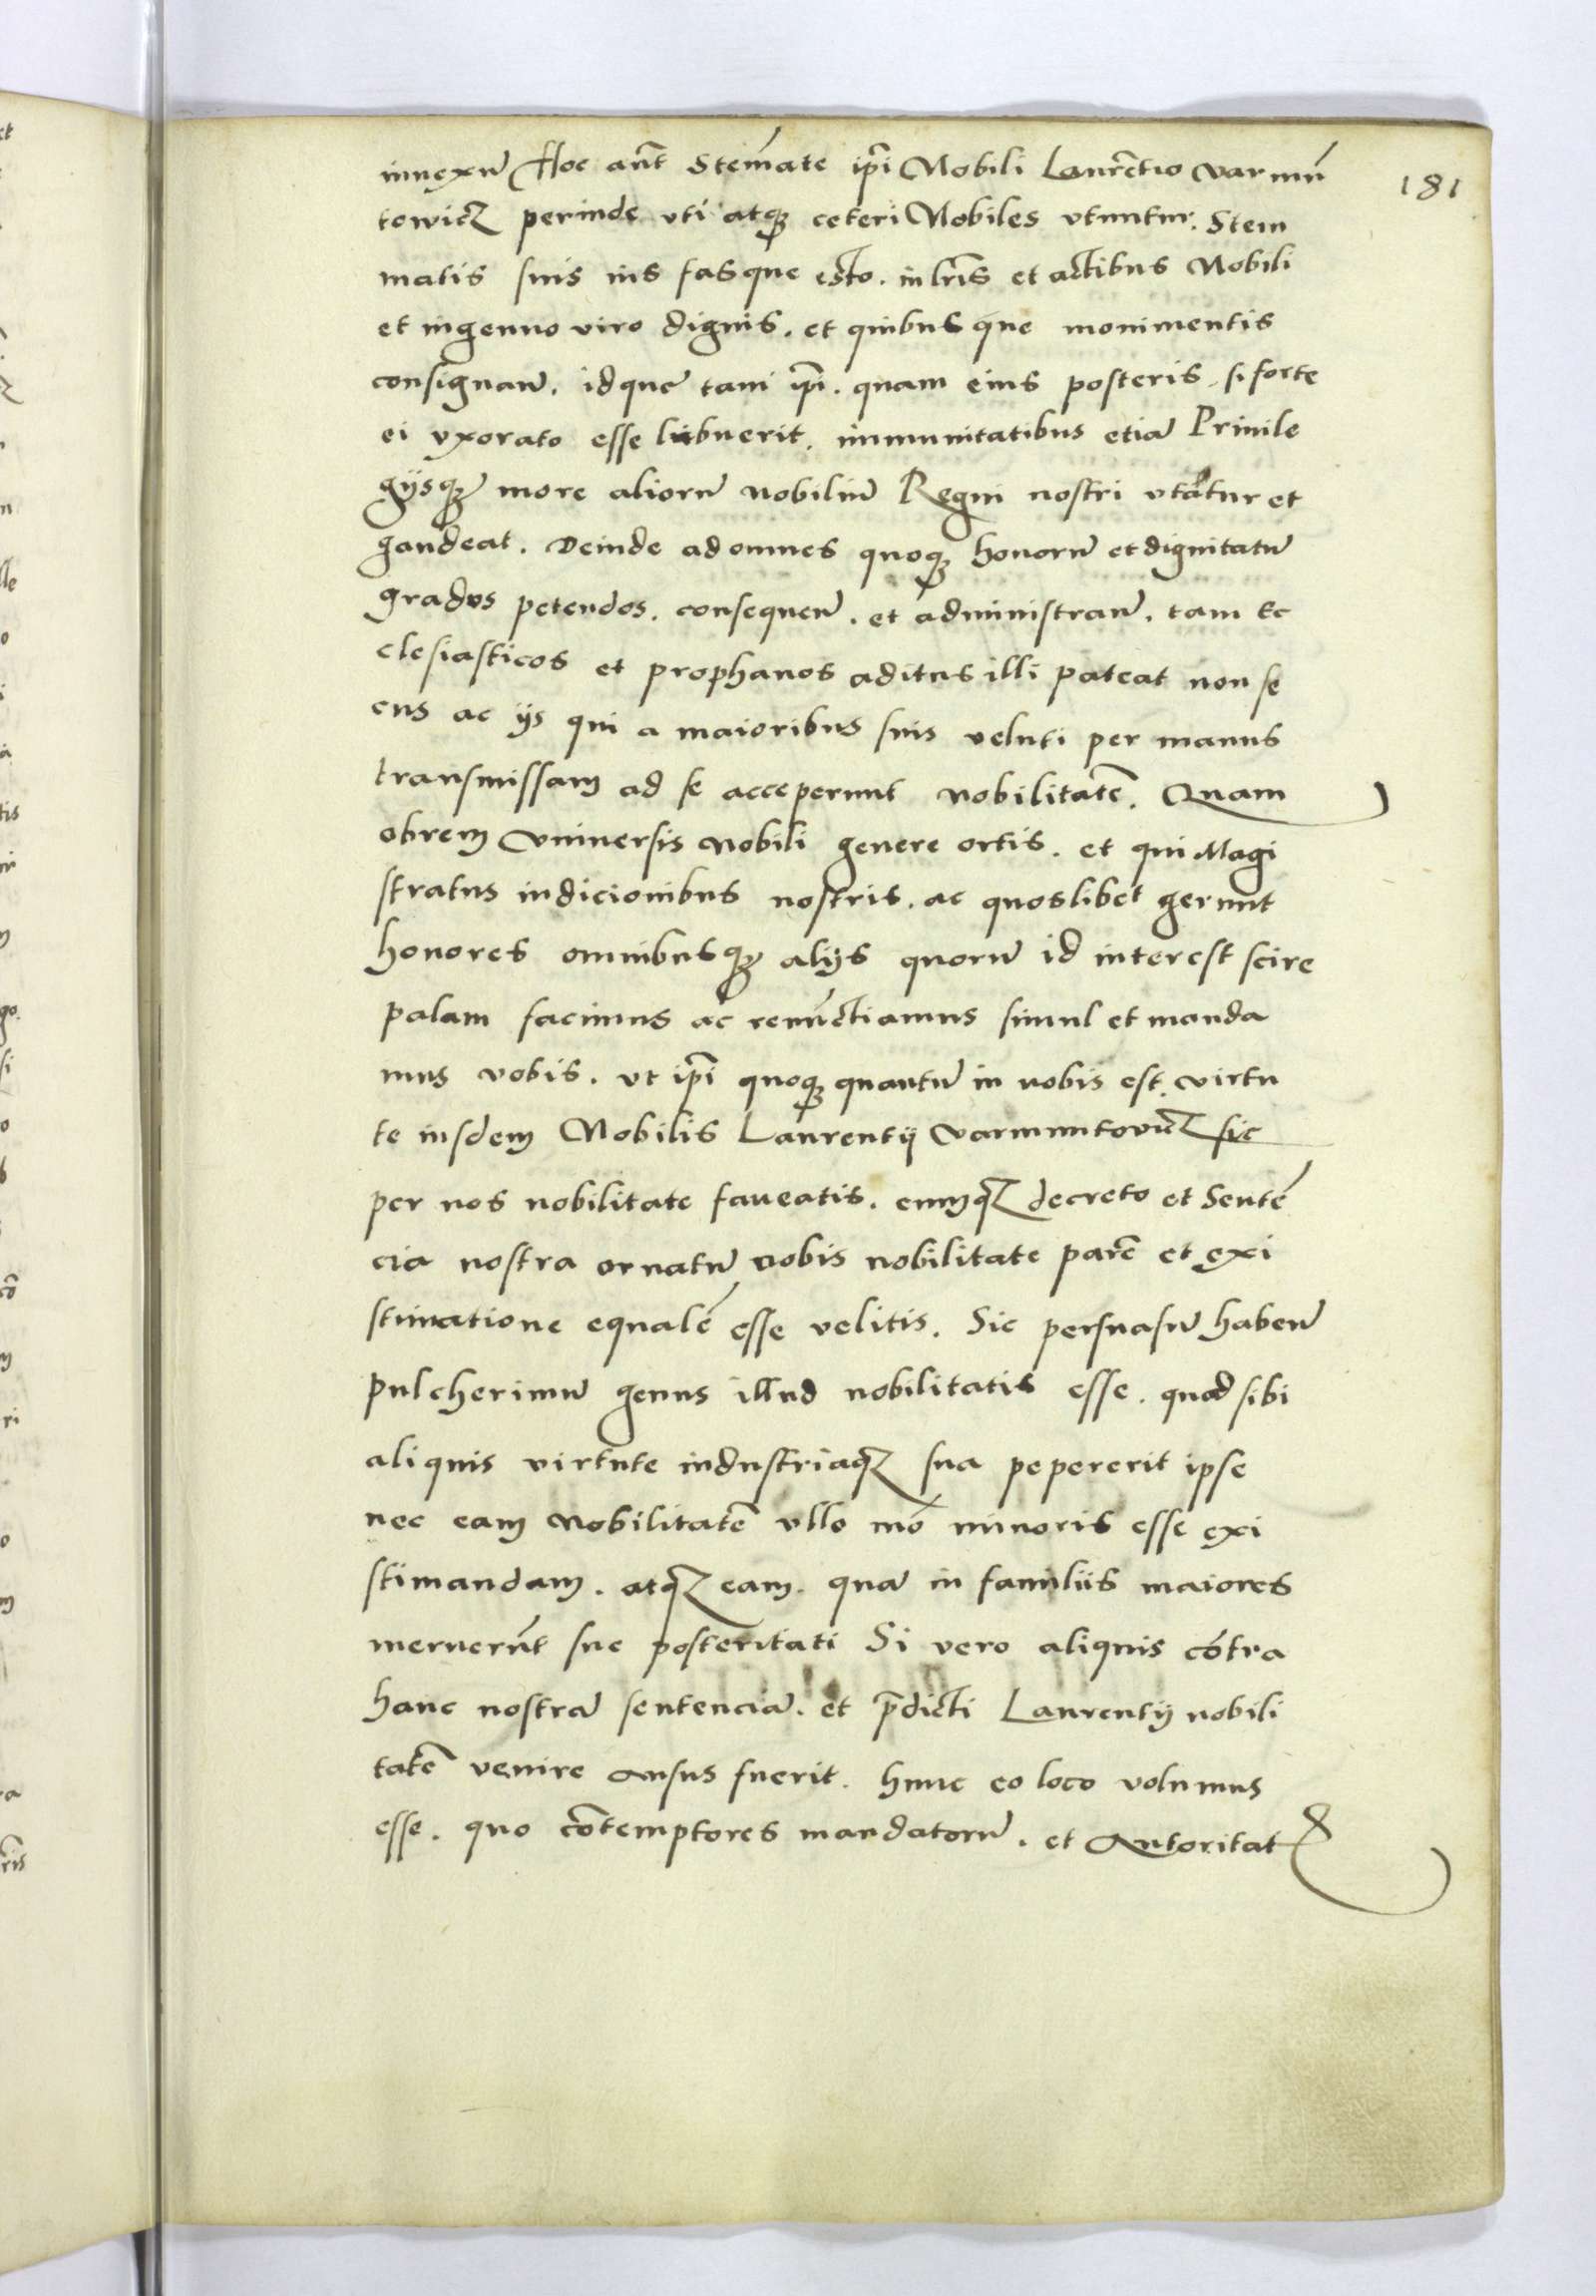 181
innexū Hoc aūt Stem̄ate ip̄i Nobili Laurētio Varmū
towicz perinde uti atq; ceteri Nobiles utuntur. Stem
matis suis ius fasque esto. in lr̄is et actibus Nobili
et ingenuo viro dignis. et quibusque monimentis
consignan̄. idque tam ip̄i. quam eius posteris. si forte
ei uxorato esse libuerit. immunitatibus etiā Privile
gijsq; more aliorū nobiliū Regni nostri utatur et
gaudeat. Deinde ad omnes quoq; honorū et dignitatū
gradus petendos. consequen̄. et administran̄. tam Ec
clesiasticos et prophanos aditus illi pateat non se
cus ac ijs qui a maioribus suis veluti per manus
transmissam ad se acceperunt nobilitatē. Quam
obrem Universis Nobili genere ortis. et qui Magi
stratus in dicionibus nostris. ac quoslibet gerunt
honores omnibusq; alijs quorū id interest scire
palam facimus ac renūctiamus simul et manda
mus vobis. ut ip̄i quoq; quantū in vobis est. virtu
te iusdem Nobilis Laurentij Varmuntovicz sic
per nos nobilitate faveatis. eumq; decreto et Sentē
cia nostra ornatū vobis nobilitate parē et exi
stimatione equalē esse velitis. Sic persuasū haben̄
pulcherimū genus illud nobilitatis esse. quod sibi
aliquis virtute industriaq; sua pepererit ipse
nec eam Nobilitatē ullo mō minoris esse exi
stimandam. atq; eam. quā in familiis maiores
meruerūt sue posteritati Si vero aliquis cōtra
hanc nostrā sentenciā. et p̄dicti Laurentij nobili
tatē venire ausus fuerit. hunc eo loco volumus
esse. quo cōtemptores mandatorū. et Autoritat